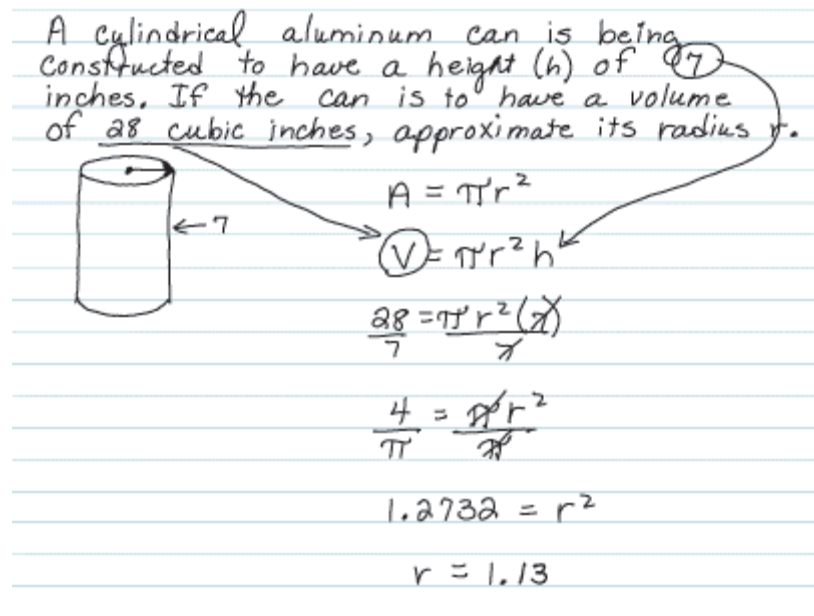 A cylindrical aluminum can is being
constructed to have a height (h) of 7
inches. If the can is to have a volume
of 28 cubic inches, approximate its radius r.
A = πr²
← 7
V = πr²h
28/7 = πr²(7)/7
4/π = πr²/π
1.2732 = r²
r = 1.13